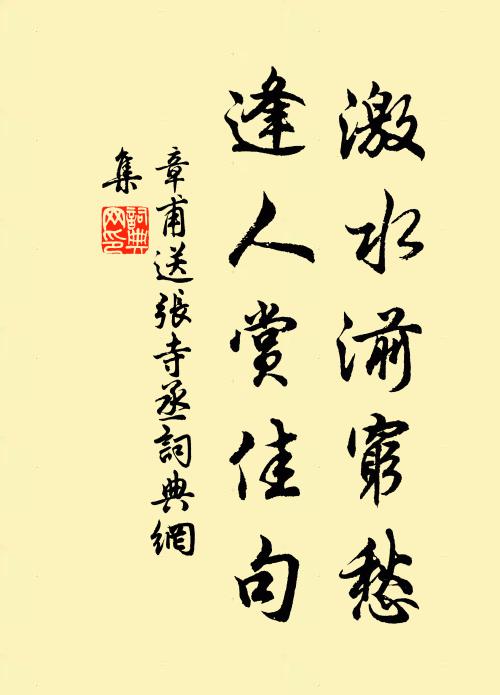 激水湔窮愁
逢人賞佳句
章甫送張寺丞詞典網
集
詞典
网印